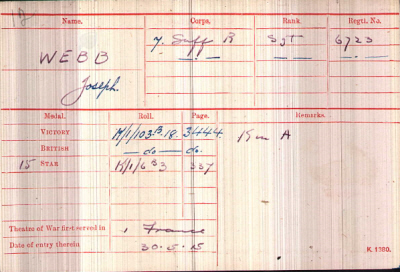 Name. Corps. Rank. Regtl. No.
WEBB 7. Suff R Sgt 6723
Joseph.
Medal. Roll. Page. Remarks.
VICTORY K/1/103B18 3444
BRITISH — do — do.
15 STAR K/1/6B3 337
Theatre of War first served in 1 France
Date of entry therein 30.5.15
K 1380.